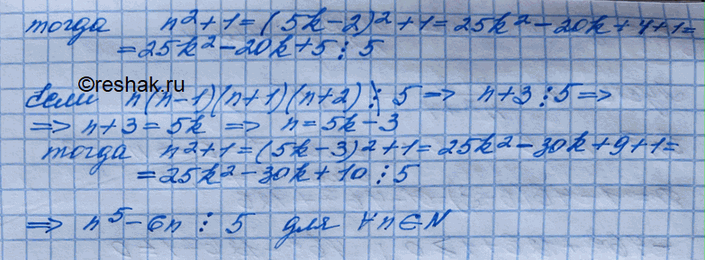 тогда n²+1=(5k-2)²+1=25k²-20k+4+1=
=25k²-20k+5⋮5
©reshak.ru
Если n(n-1)(n+1)(n+2)⋮̸5 => n+3⋮5=>
=> n+3=5k => n=5k-3
тогда n²+1=(5k-3)²+1=25k²-30k+9+1=
=25k²-30k+10⋮5
=> n⁵-6n ⋮ 5 для ∀n∈N